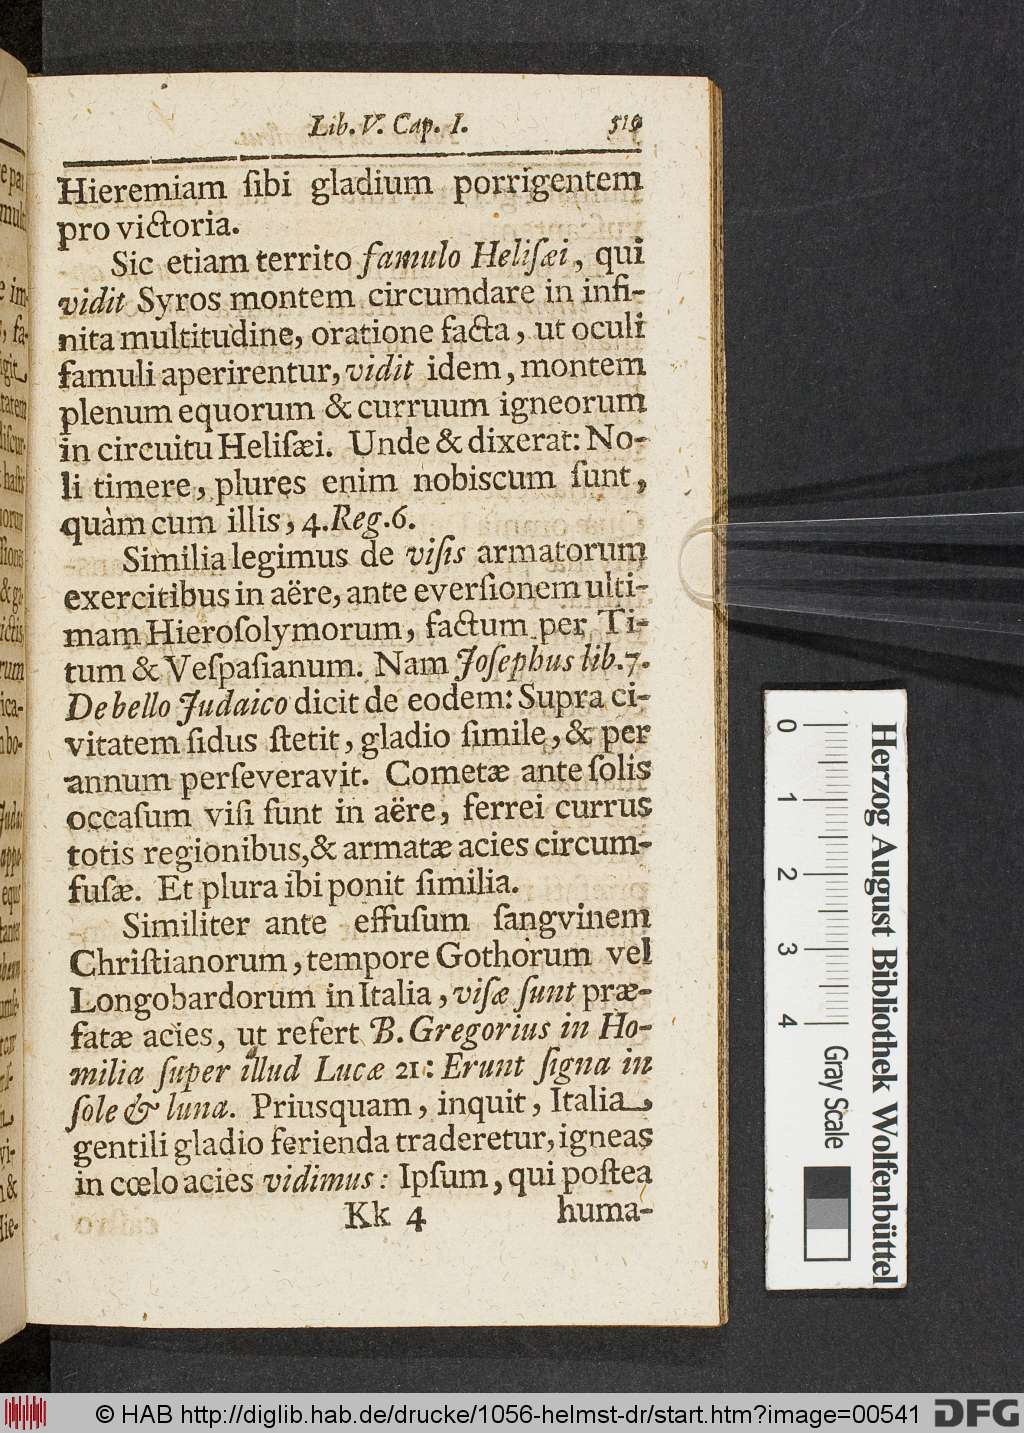 Lib. V. Cap. I. 519
Hieremiam ſibi gladium porrigentem
pro victoria.
Sic etiam territo famulo Heliſæi, qui
vidit Syros montem circumdare in infi-
nita multitudine, oratione facta, ut oculi
famuli aperirentur, vidit idem, montem
plenum equorum & curruum igneorum
in circuitu Heliſæi. Unde & dixerat: No-
li timere, plures enim nobiscum ſunt,
quàm cum illis, 4. Reg. 6.
Similia legimus de viſis armatorum
exercitibus in aëre, ante everſionem ulti-
mam Hieroſolymorum, factum per Ti-
tum & Veſpaſianum. Nam Joſephus lib. 7.
De bello Judaico dicit de eodem: Supra ci-
vitatem ſidus ſtetit, gladio ſimile, & per
annum perſeveravit. Cometæ ante ſolis
occaſum viſi ſunt in aëre, ferrei currus
totis regionibus, & armatæ acies circum-
fuſæ. Et plura ibi ponit ſimilia.
Similiter ante effuſum ſangvinem
Chriſtianorum, tempore Gothorum vel
Longobardorum in Italia, viſæ ſunt præ-
fatæ acies, ut refert B. Gregorius in Ho-
milia ſuper illud Lucæ 21: Erunt ſigna in
ſole & luna. Priusquam, inquit, Italia,
gentili gladio ferienda traderetur, igneas
in cœlo acies vidimus: Ipſum, qui poſtea
Kk 4 huma-
0 1 2 3 4
Herzog August Bibliothek Wolfenbüttel
Gray Scale
© HAB http://diglib.hab.de/drucke/1056-helmst-dr/start.htm?image=00541
DFG